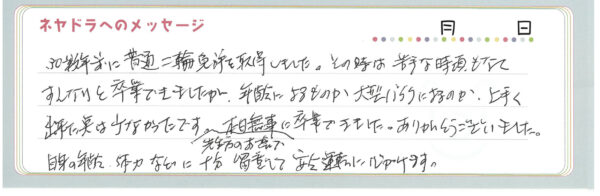 ネヤドラへのメッセージ
月 日
30数年前に普通二輪免許を取得しました。その時は苦手な時項もなく
すんなりと卒業できましたが、年齢によるものか大型バイクになるのか、上手く
出来た実は少なかったです。本日無事に卒業できました。ありがとうございました。
先生方のお蔭で
自身の年齢、体力などに十分留意して安全運転に心がけます。